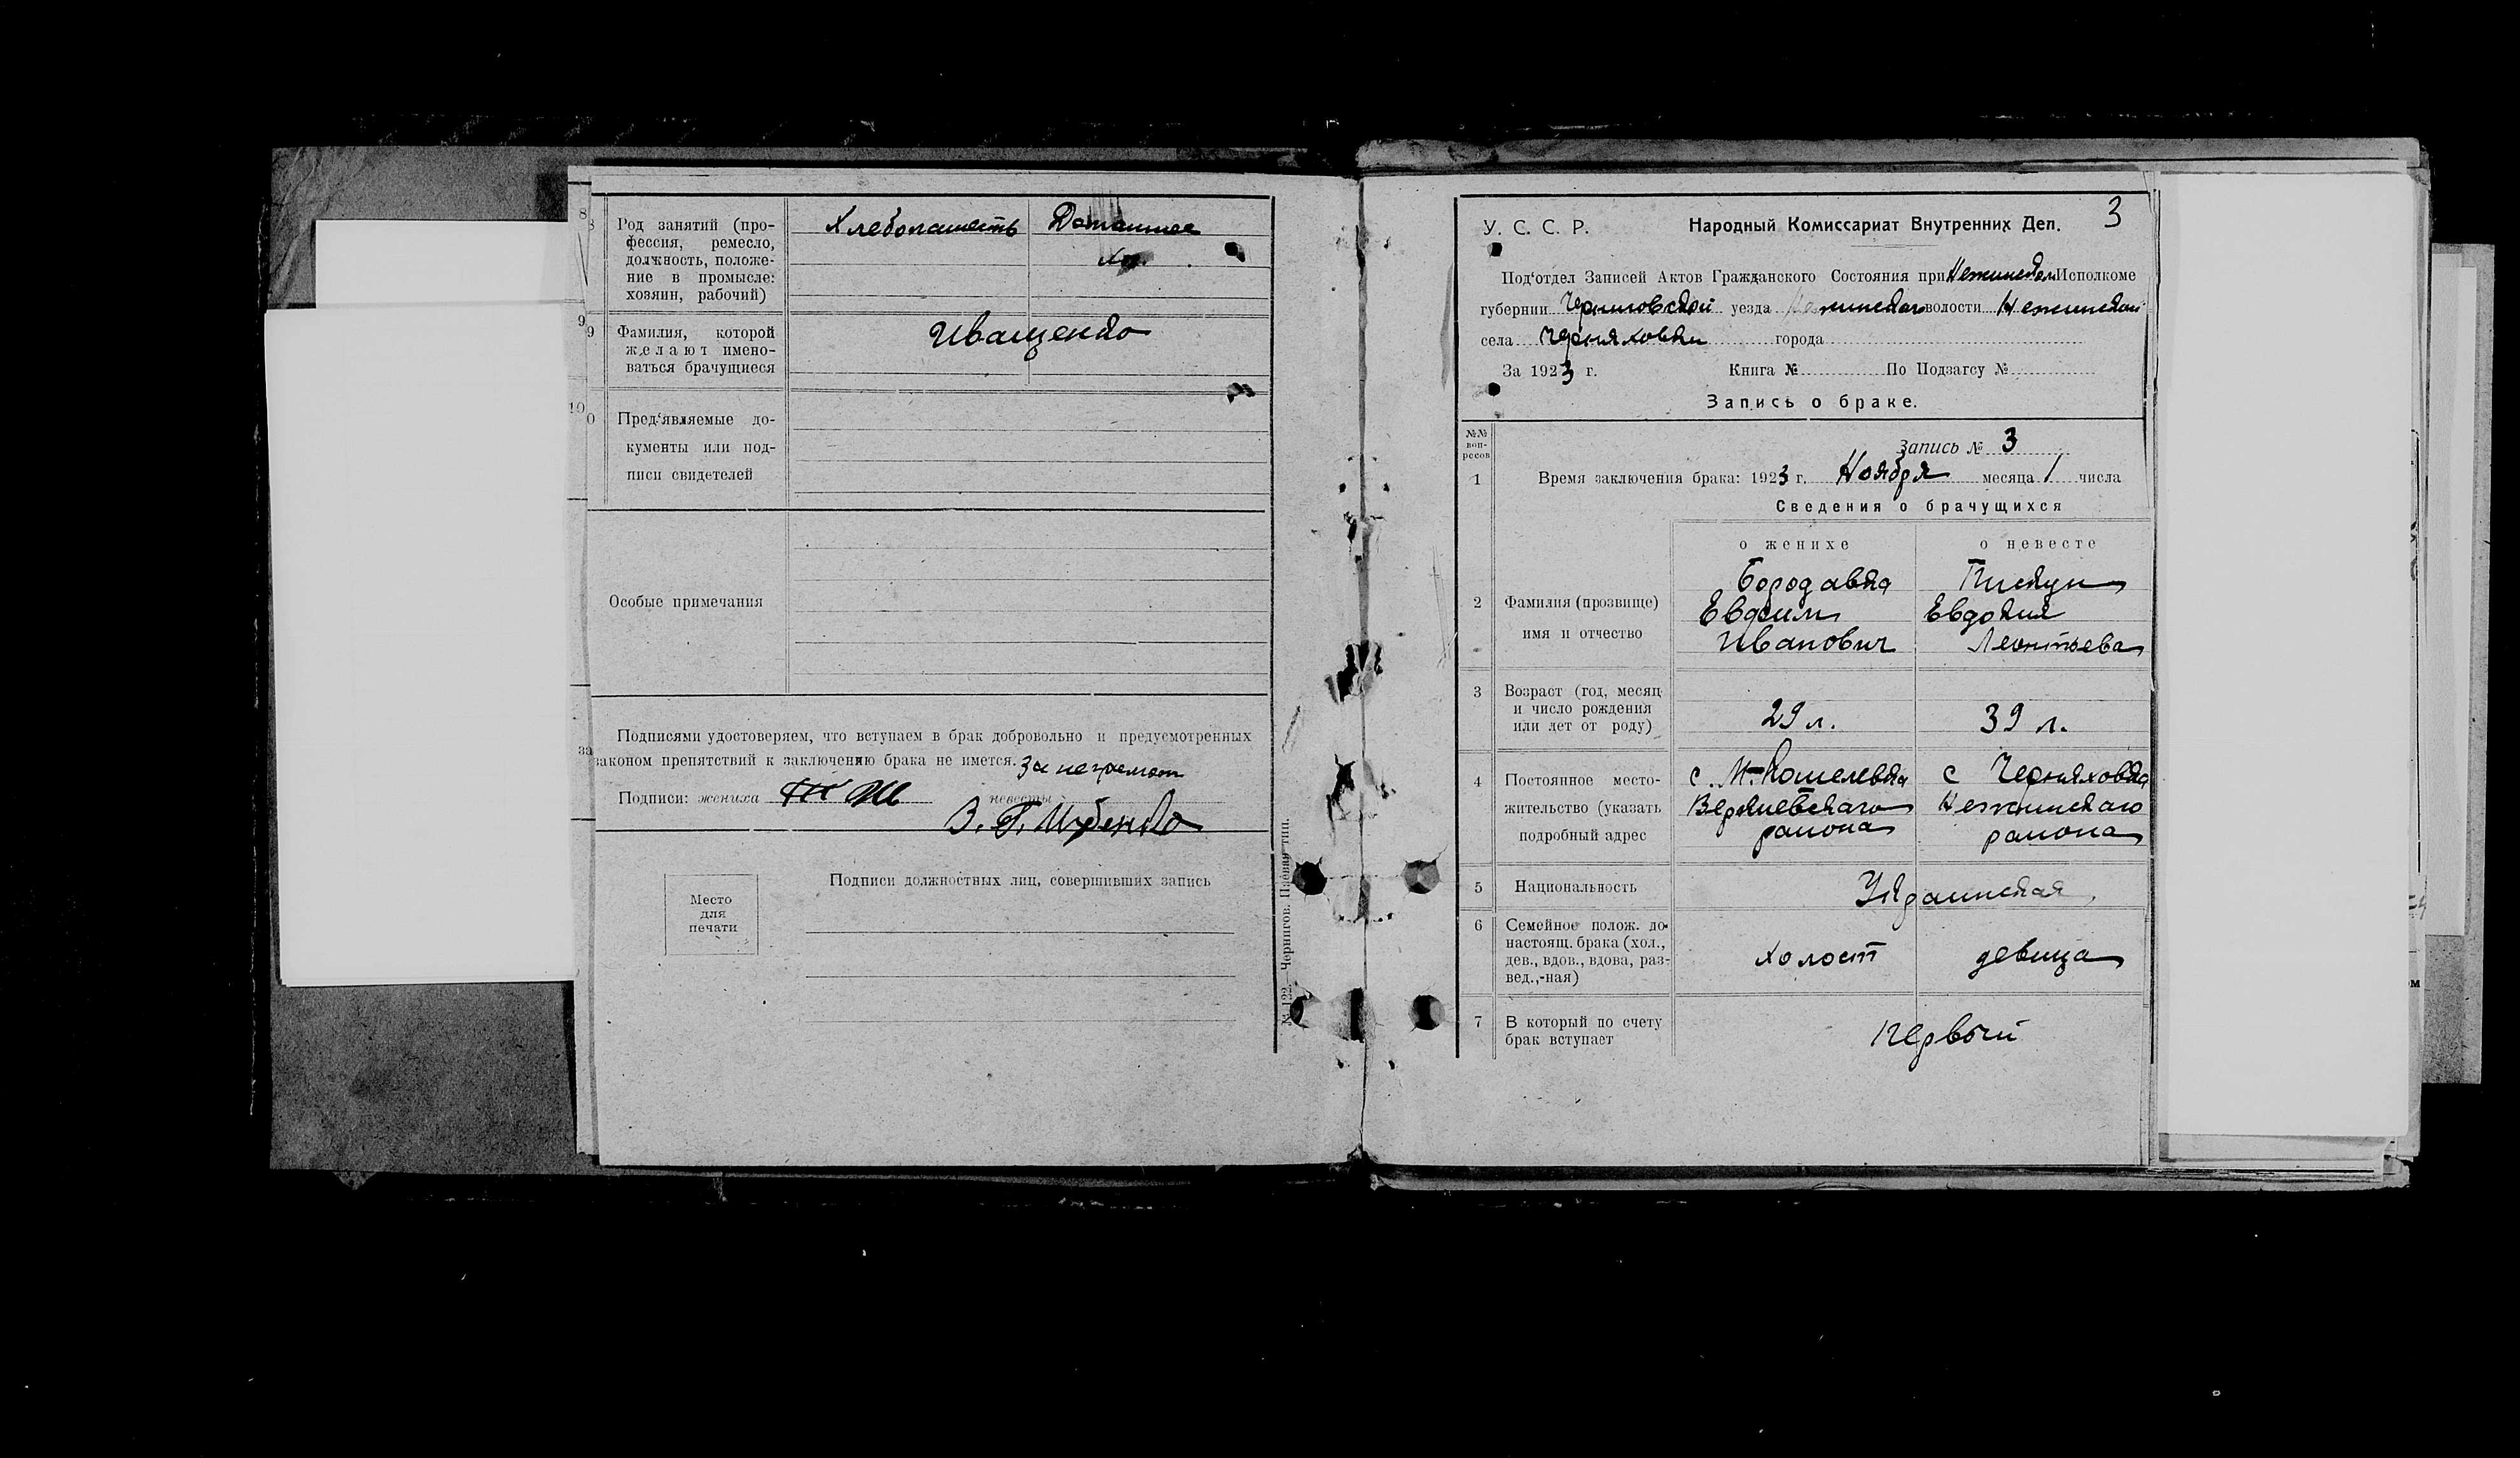 8
8
Род занятий (про-
фессия, ремесло,
должность, положе-
ние в промысле:
хозяин, рабочий)
Хлебопашеств Домашнее
Хоз.
9
9
Фамилия, которой
желают имено-
ваться брачущиеся
Иващенко
10
0
Пред‘являемые до-
кументы или под-
писи свидетелей
Особые примечания
Подписями удостоверяем, что вступаем в брак добровольно и предусмотренных
за
законом препятствий к заключению брака не имется. За неграмотн
Подписи: жениха невесты
Место
для
печати
Подписи должностных лиц, совершивших запись
№ 132 Чернигов. тип.
3
У. С. С. Р. Народный Комиссариат Внутренних Дел.
Под‘отдел Записей Актов Гражданского Состояния при Нежинском Исполкоме
губернии Черниговской уезда Нежинскаго волости Нежинской
села Черняховки города
За 1923 г. Книга № По Подзагсу №
Запись о браке.
№№
воп-
россов
Запись № 3
1 Время заключения брака: 1923 г. Ноября месяца 1 числа
Сведения о брачущихся
о женихе о невесте
2 Фамилия (прозвище)
имя и отчество
Бородавка Пискун
Евфим Евдокия
Иванович Леонтьева
3 Возраст (год, месяц
и число рождения
или лет от роду)
29 л. 39 л.
4 Постоянное место-
жительство (указать
подробный адрес
с. М-Кошелевка с Черняховка
Веркиевскаго Нежинскаго
района района
5 Национальность Украинская
6 Семейное полож. до
настоящ. брака (хол.,
дев., вдов., вдова, раз-
вед.,-ная)
холост девица
7 В который по счету
брак вступает
первый